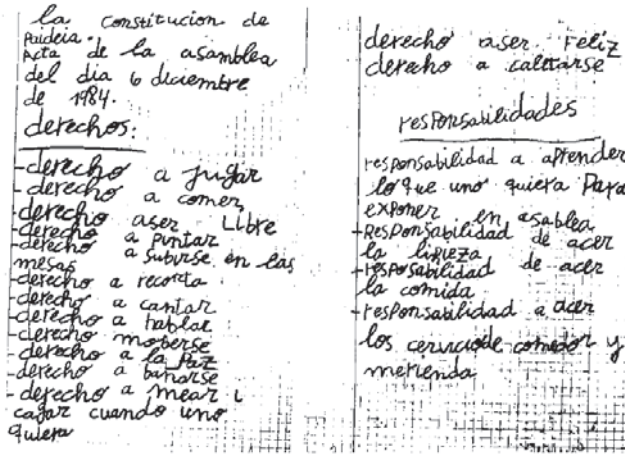 la constitucion de
Paideia.
Acta de la asamblea
del dia 6 diciembre
de 1984.
derechos:
-derecho a jugar
-derecho a comer
-derecho aser Libre
-derecho a pintar
-derecho a subirse en las
mesas
-derecho a recorta
-derecho a cantar
-derecho a hablar
-derecho moberse
-derecho a la Paz
-derecho a bañarse
-derecho a mear i
cagar cuando uno
quiera
derecho aser Feliz
derecho a calllarse
responsabilidades
responsabilidad a aprender
lo que uno quiera Para
exponer en asablea
-Responsabilidad de acer
la lipieza
-resposabilidad de acer
la comida
-responsabilidad a acer
los cerviciode comedor y
merienda